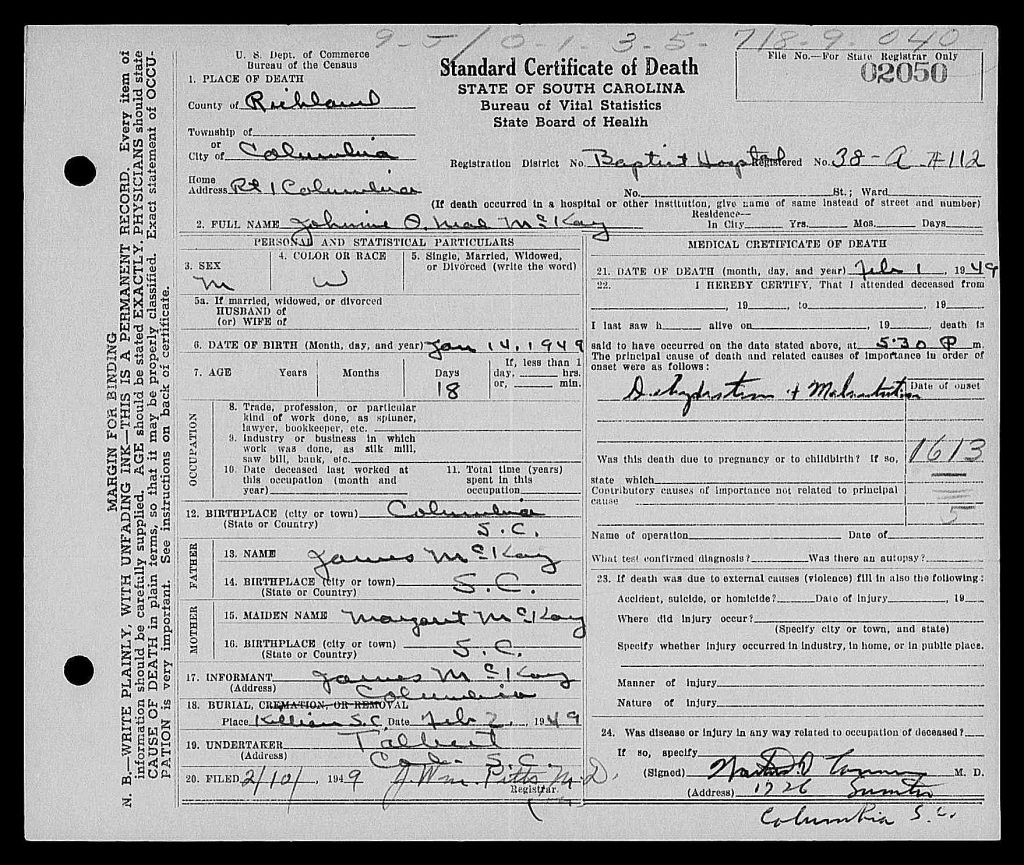 9-5/0-1-3-5-718-9-040
U. S. Dept. of Commerce
Bureau of the Census
Standard Certificate of Death
STATE OF SOUTH CAROLINA
Bureau of Vital Statistics
State Board of Health
File No.—For State Registrar Only
02050
1. PLACE OF DEATH
County of Richland
Township of
or
City of Columbia
Registration District No. Baptist Hospital Registered No. 38-A #112
Home
Address Rt 1 Columbia
No. St.; Ward
(If death occurred in a hospital or other institution, give name of same instead of street and number)
2. FULL NAME Johnnie O.Neal McKay
Residence—
In City Yrs. Mos. Days
PERSONAL AND STATISTICAL PARTICULARS
3. SEX
M
4. COLOR OR RACE
W
5. Single, Married, Widowed,
or Divorced (write the word)
5a. If married, widowed, or divorced
HUSBAND of
(or) WIFE of
6. DATE OF BIRTH (Month, day, and year) Jan 14, 1949
7. AGE Years Months Days
18
If, less than 1
day, hrs.
or, min.
OCCUPATION
8. Trade, profession, or particular
kind of work done, as spinner,
lawyer, bookkeeper, etc.
9. Industry or business in which
work was done, as silk mill,
saw bill, bank, etc.
10. Date deceased last worked at
this occupation (month and
year)
11. Total time (years)
spent in this
occupation
12. BIRTHPLACE (city or town) Columbia
(State or Country) S.C.
FATHER
13. NAME James McKay
14. BIRTHPLACE (city or town) S.C.
(State or Country)
MOTHER
15. MAIDEN NAME Margaret McKay
16. BIRTHPLACE (city or town) S.C.
(State or Country)
17. INFORMANT James McKay
(Address) Columbia
18. BURIAL, CREMATION, OR REMOVAL
Place Killian S.C. Date Feb 2, 1949
19. UNDERTAKER Talbert
(Address) Col. S.C.
20. FILED 2/10/ 1949 J. Wm. Pitts M.D.
Registrar.
MEDICAL CRETIFICATE OF DEATH
21. DATE OF DEATH (month, day, and year) Feb 1, 1949
22. I HEREBY CERTIFY, That I attended deceased from
, 19 , to , 19 .
I last saw h alive on , 19 , death is
said to have occurred on the date stated above, at 5:30 P m.
The principal cause of death and related causes of importance in order of
onset were as follows:
Dehydration + Malnutrition Date of onset
Was this death due to pregnancy or to childbirth? If so, 1613
state which
Contributory causes of importance not related to principal
cause
5
Name of operation Date of
What test confirmed diagnosis? Was there an autopsy?
23. If death was due to external causes (violence) fill in also the following:
Accident, suicide, or homicide? Date of injury , 19
Where did injury occur?
(Specify city or town, and state)
Specify whether injury occurred in industry, in home, or in public place.
Manner of injury
Nature of injury
24. Was disease or injury in any way related to occupation of deceased?
If so, specify
(Signed) M. D.
(Address) 1726 Sumter
Columbia S.C.
N. B.—WRITE PLAINLY, WITH UNFADING INK—THIS IS A PERMANENT RECORD. Every item of
MARGIN FOR BINDING
information should be carefully supplied. AGE should be stated EXACTLY. PHYSICIANS should state
CAUSE OF DEATH in plain terms, so that it may be properly classified. Exact statement of OCCU-
PATION is very important. See instructions on back of certificate.